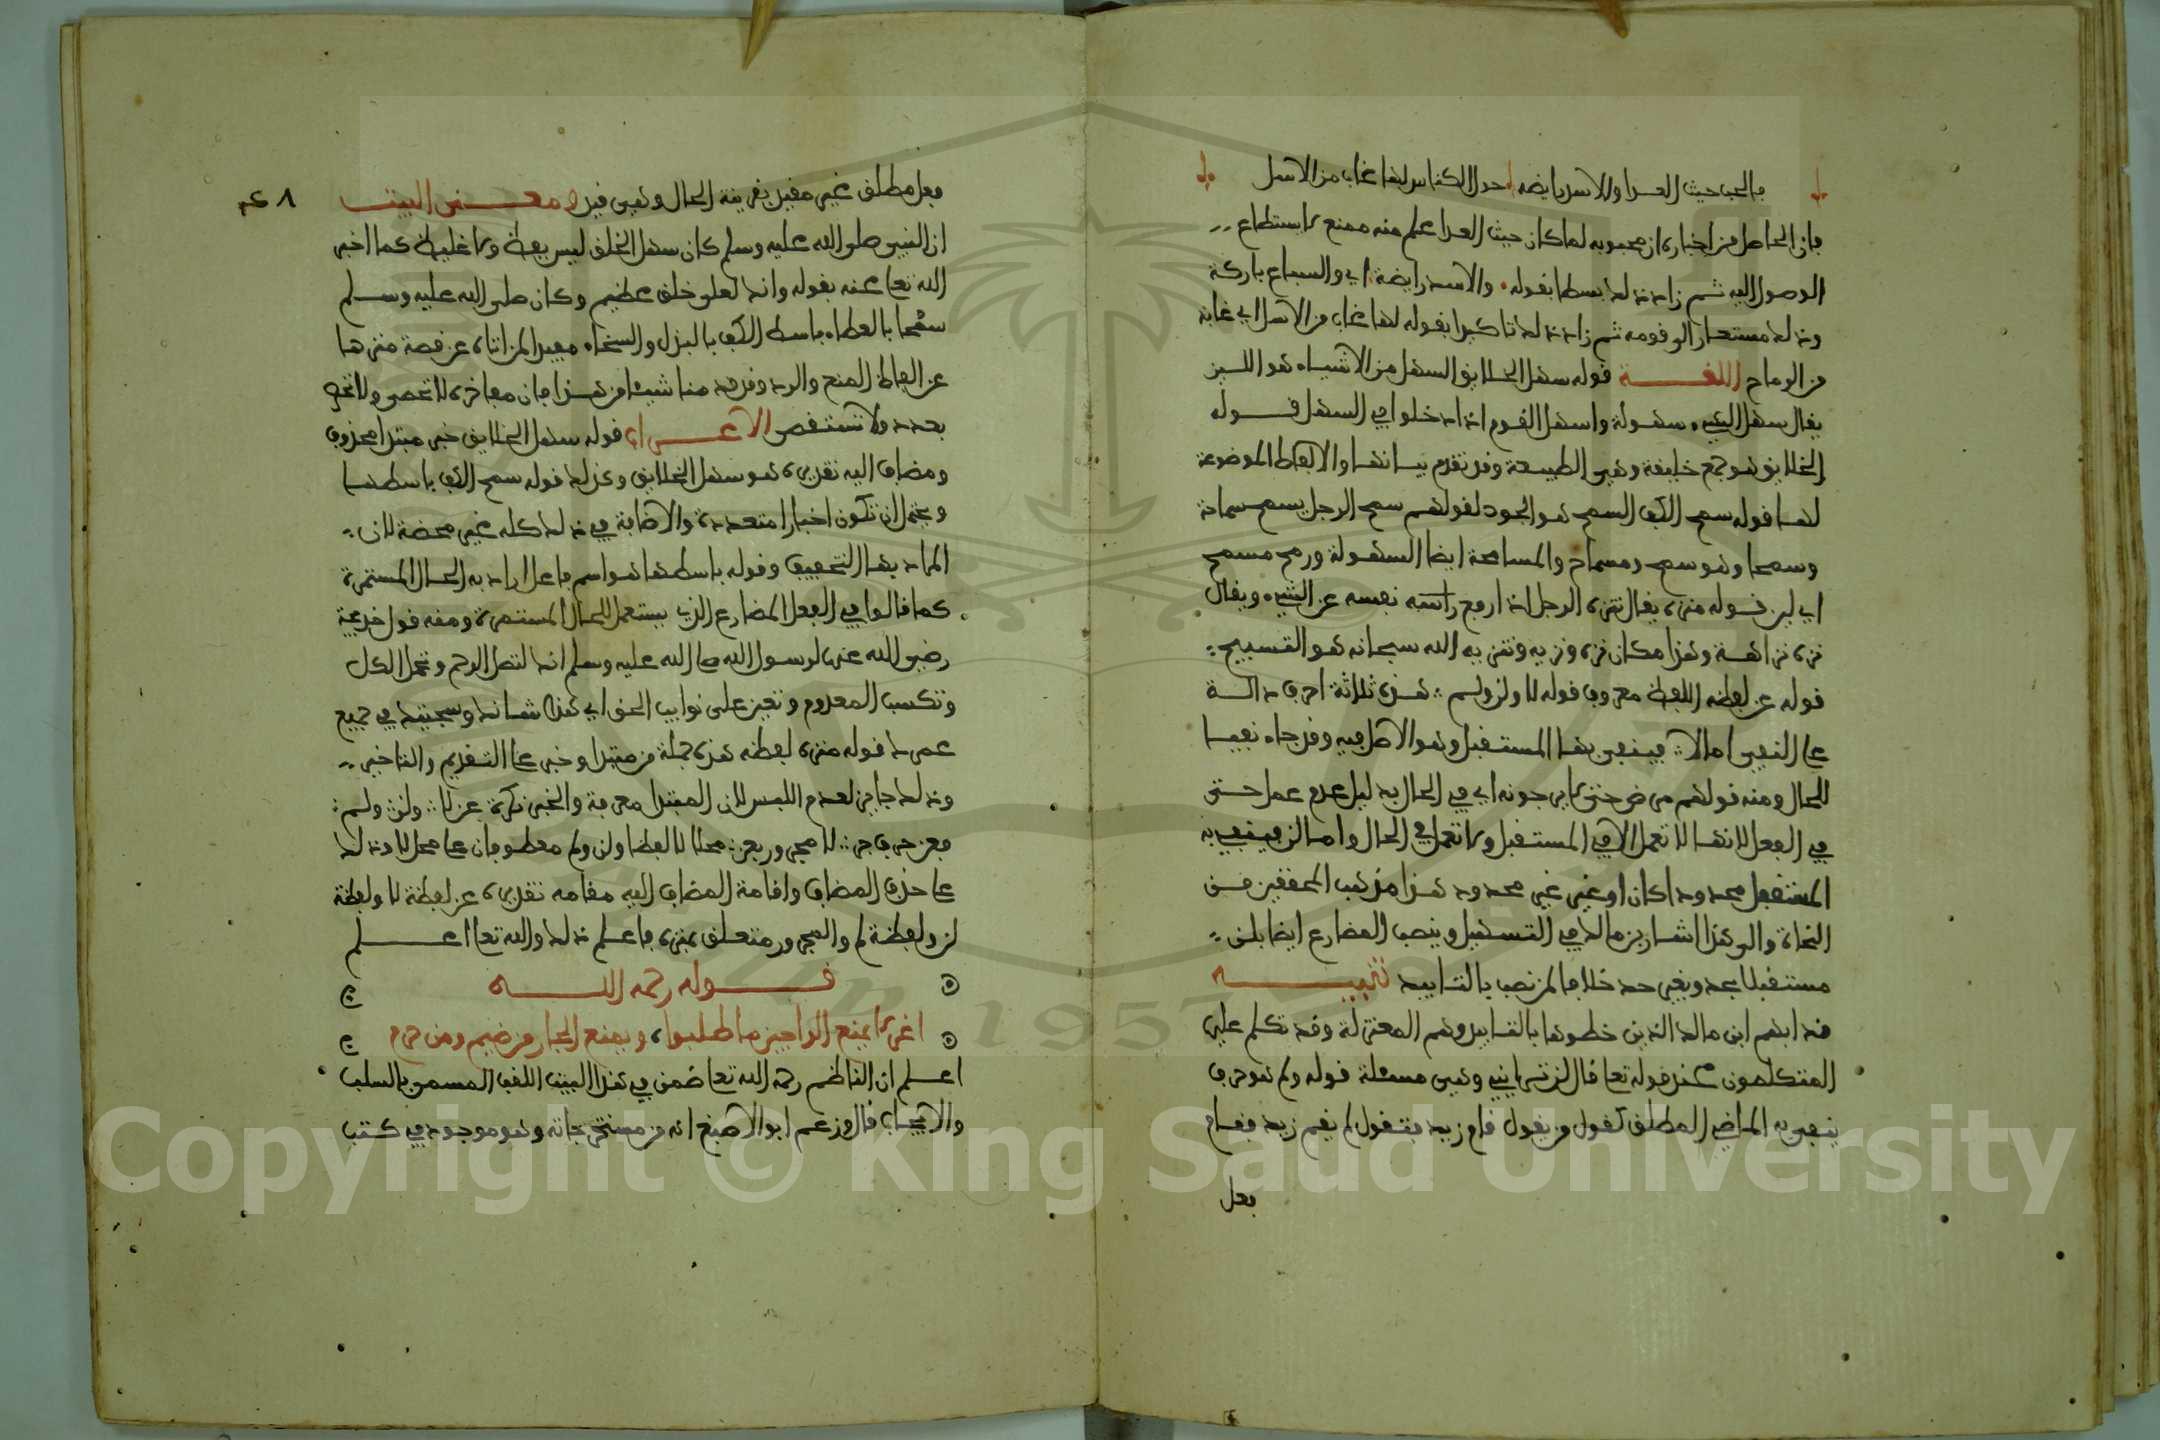 فالحب حيث العدا والاسد رابضة حول الكناس لها غاب من الاسل
فان الحاصل من اخباره ان محبوبه لما كان حيث العدا علم منه ممنع لا يستطاع
الوصول اليه ثم زاد ذلك بسطا بقوله والاسد رابضة اي والسباع باركة
وذلك مستعار الى قومه ثم زاد ذلك تاكيدا بقوله لها غاب من الاسل اي غابة
من الرماح اللغة قوله سهل الخلايق السهل من الاشياء هو اللين
يقال سهل الشيء سهولة واسهل القوم اذا دخلوا في السهل قوله
الخلايق هو جمع خليقة وهي الطبيعة وقد تقدم بيانها والالفاظ الموضوعة
لها قوله سمح الكف السمح هو الجود لقولهم سمح الرجل يسمح سماحة
وسمحا وهو سمح ومسماح والمسامحة ايضا السهولة ورمح مسمح
اي لين قوله منزه يقال تنزه الرجل اذا رفع راسه نفسه عن الشيء ويقال
نزه نزاهة وهذا مكان نزه ونزيه وتنزيه الله سبحانه هو التسبيح
قوله عن لفظه اللفظ معروف قوله لا ولن ولم هذه ثلاثة احرف دالة
على النفي اما لا فينفى بها المستقبل وهو الاصل فيه وقد جاء نفيها
للحال ومنه قولهم مرض حتى لا يرجونه اي في الحال بدليل عدم عمل حتى
في الفعل لانها لا تعمل الا في المستقبل ولا تعمل في الحال واما لن فينفى به
المستقبل محدودا كان او غير غير محدود هذا مذهب المحققين من
النحاة والى هذا اشار بن مالك في التسهيل وينصب المضارع ايضا بلن
مستقبلا بحد وبغير حد خلافا لمن نصب بالتابيد تنبيه
قد ابهم ابن مالك الذين خطوها بالتابيد وهم المعتزلة وقد تكلم على
المتكلمون عند قوله تعا قال لن تراني وهي مسئلة قوله ولم هو حرف
ينفى به الماضي المطلق كقول من يقول قام زيد فتقول لم يقم زيد فقام
فعل
فعل مطلق غير مقيد بقرينة الحال وهي قيد ومعنى البيت ٤٨
ان النبي صلى الله عليه وسلم كان سهل الخلق ليس بفظ ولا غليظ كما اخبر
الله تعا عنه بقوله وانك لعلى خلق عظيم وكان صلى الله عليه وسلم
سمحا بالعطاء باسط الكف بالبذل والسخاء مفيدا لمن اتاه عن قصة منزها
عن الفاظ المنع والرد وقد قدمنا شيئا من هذا فان مفاخره لا تحصى ولا تحصر
بعدد ولا تستقصى الاعراب قوله سهل الخلايق خبر مبتدا محذوف
ومضاف اليه تقديره هو سهل الخلايق وكذلك قوله سمح الكف باسطها
ويحتمل ان تكون اخبارا متعددة والاضافة في ذلك كله غير محضة لان
المراد بها التخفيف وقوله باسطها هو اسم فاعل اراد به الحال المستمرة
كما قالوا في الفعل المضارع الذي يستعمل للحال المستمرة ومنه قول خديجة
رضي الله عنها لرسول الله صلى الله عليه وسلم انك لتصل الرحم وتحمل الكل
وتكسب المعدوم وتعين على نوايب الحق اي هذا شانك وسجيتك في جميع
عمرك قوله منزه لفظه هذه جملة من مبتدا وخبر على التقديم والتاخير
وذلك جايز لعدم اللبس لان المبتدا معرفة والخبر نكرة عن لا ولن ولم
فعن حرف جر لا مجرور بعن محلا لا لفظا ولن ولم معطوفان على محل لا وذلك
على حذف المضاف واقامة المضاف اليه مقامه تقديره عن لفظة لا ولفظة
لن ولفظة لم والمجرور متعلق بمنزه فاعلم ذلك والله تعا اعلم
قوله رحمه الله
اغر لا يمنع الراجين ما طلبوا ويمنع الجار من ضيم ومن حرم
اعلم ان الناظم رحمه الله تعا ضمن في هذا البيت اللقب المسمى بالسلب
والايجاب قال وزعم ابو الاصبع انه من مستخرجاته وهو موجود في كتب